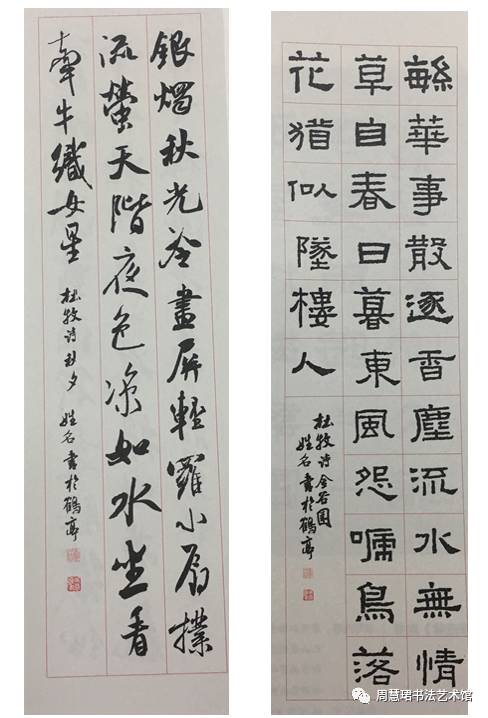 銀燭秋光冷畫屏輕羅小扇撲
流螢天階夜色凉如水坐看
牽牛織女星
杜牧诗秋夕 姓名書於鶴亭
緐華事散逐香塵流水無情
草自春日暮東風怨嗁鳥落
花猶似墜樓人
杜牧诗金谷園
姓名書於鶴亭
周慧珺书法艺术馆